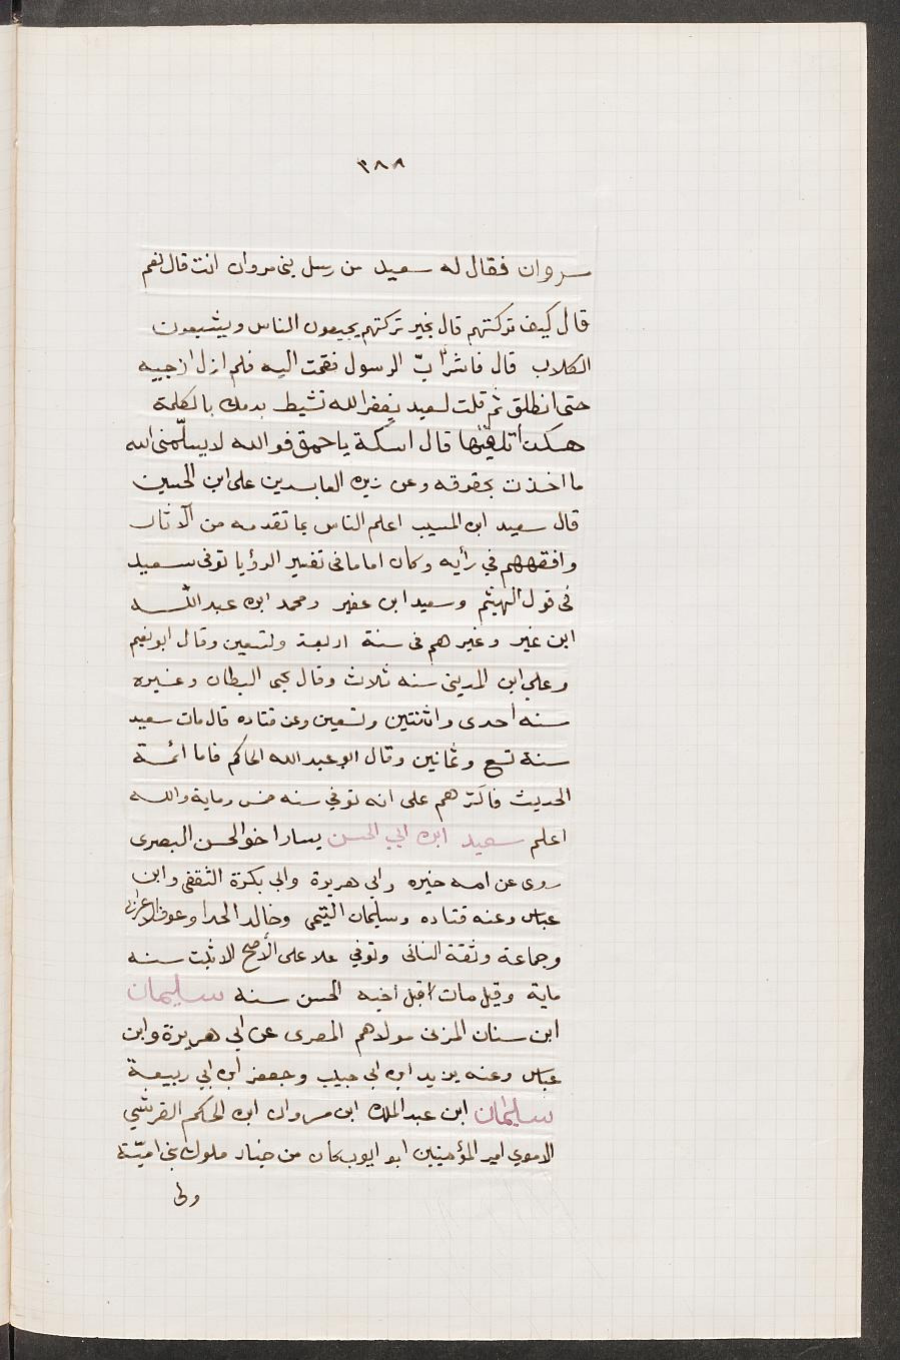 ٣٨٨
مروان فقال له سعيد من رسل بنى مروان انت قال نعم
قال كيف تركتهم قال بخير تركتهم يجيعون الناس ويشبعون
الكلاب قال فاشرأبّ الرسول فقمت اليه فلم ازل ازجيه
حتى انطلق ثم قلت لسعيد يغفر الله تشيط بدمك بالكلمة
هكذا تلقيها قال اسكة يا حمق فوالله لا يسلّمنى الله
ما اخذت بحقوقه وعن زين العابدين على ابن الحسين
قال سعيد ابن المسيب اعلم الناس بما تقدمه من الآثار
وافقههم في رأيه وكان اماما فى تفسير الرؤيا توفى سعيد
فى قول الهيثم وسعيد ابن عفير ومحمد ابن عبد الله
ابن نمير وغيرهم فى سنة اربعة وتسعين وقال ابو نعيم
وعلي ابن المدينى سنه ثلاث وقال يحيى القطان وغيره
سنه أحدى واثنتين وتسعين وعن قتاده قال مات سعيد
سنة تسع وثمانين وقال ابو عبد الله الحاكم فاما ائمة
الحديث فاكثرهم على انه توفي سنه خمس وماية والله
اعلم سعيد ابن ابي الحسن يسار اخو الحسن البصرى
روى عن امه خيره وابى هريرة وابى بكرة الثقفى وابن
عباس وعنه قتاده وسليمان التيمى وخالد الحدا وعوف الاعرابى
وجماعة وثقة النسائى وتوفي على الأصح للاثبت سنه
ماية وقيل مات قبل اخيه الحسن سنه سليمان
ابن سنان المزنى مولاهم المصرى عن ابى هريرة وابن
عباس وعنه يزيد ابن ابى حبيب وجعفر ابن ابي ربيعة
سليمان ابن عبد الملك ابن مروان ابن الحكم القرشي
الاموي امير المؤمنيين ابو ايوب كان من خيار ملوك بنى اميّة
ولى